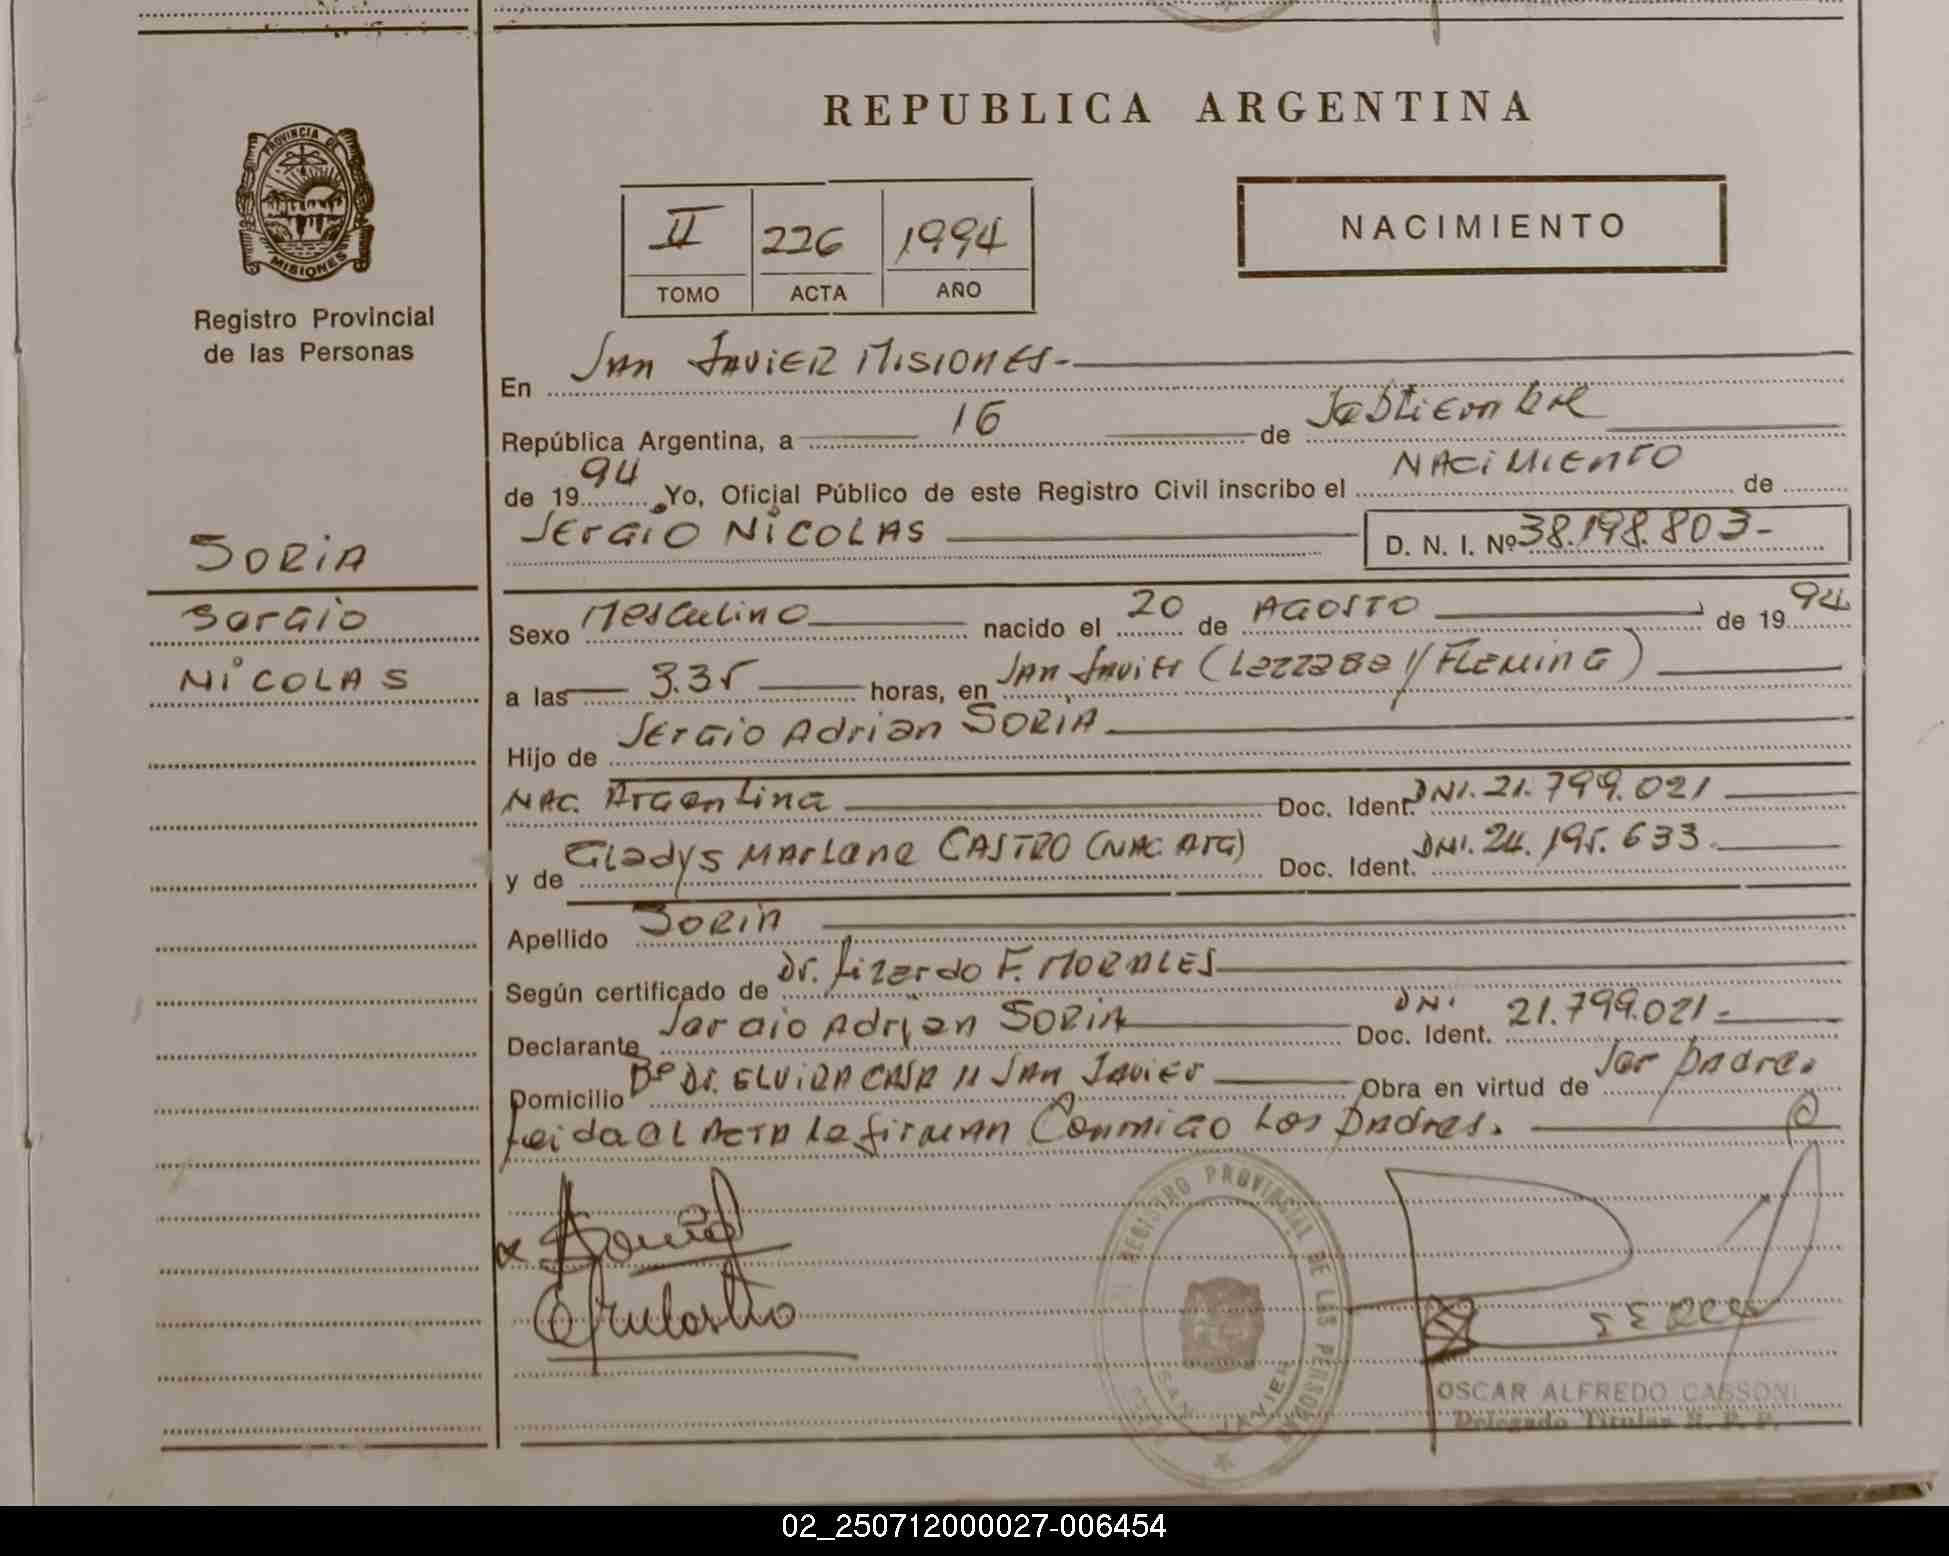 REPUBLICA ARGENTINA
PROVINCIA DE
MISIONES
Registro Provincial
de las Personas
II 226 1994
TOMO ACTA AÑO
NACIMIENTO
En San Javier Misiones-
República Argentina, a 16 de Sebtiembre
de 1994 Yo, Oficial Público de este Registro Civil inscribo el Nacimiento de
Sergio Nicolas D. N. I. Nº 38.198.803-
SORIA
Sergio
Nicolas
Sexo Masculino nacido el 20 de Agosto de 1994
a las 3.35 horas, en San Javier (Lazzaga y Fleming)
Hijo de Sergio Adrian SORIA
Nac. Argentina Doc. Ident. DNI. 21.799.021
y de Gladys Marlene CASTRO (Nac. Arg) Doc. Ident. DNI. 24.195.633
Apellido SORIA
Según certificado de Dr. Lizardo F. MORALES
Declarante Sergio Adrian SORIA Doc. Ident. DNI 21.799.021-
Domicilio Bº Dr. ELVIRA CASA 11 San Javier Obra en virtud de Ser Padre.
Leida el Acta la firman Conmigo los Padres.
REGISTRO PROVINCIAL DE LAS PERSONAS
SAN JAVIER
OSCAR ALFREDO CASSONI
Delegado Titular R. P. P.
02_250712000027-006454